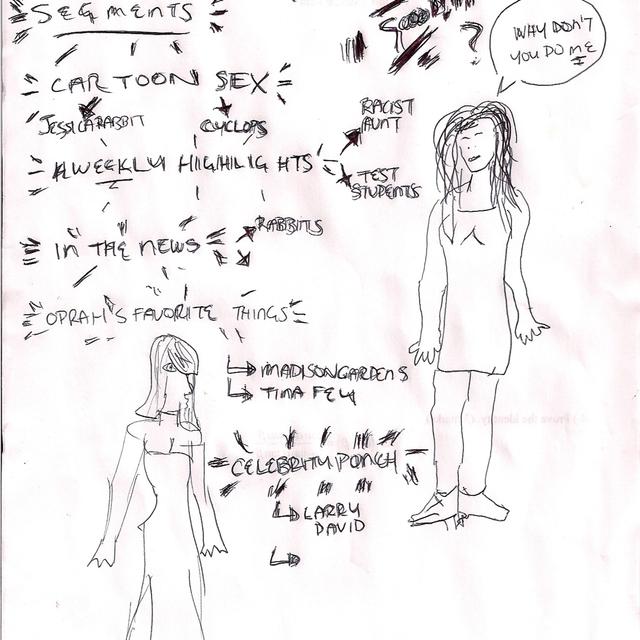 SEGMENTS
WHY DON'T
YOU DO ME
CARTOON SEX
JESSICA RABBIT
CYCLOPS
RACIST
AUNT
WEEKLY HIGHLIGHTS
TEST
STUDENTS
RABBITS
IN THE NEWS
OPRAH'S FAVORITE THINGS
MADISON GARDENS
TINA FEY
CELEBRITY PONCH
LARRY
DAVID